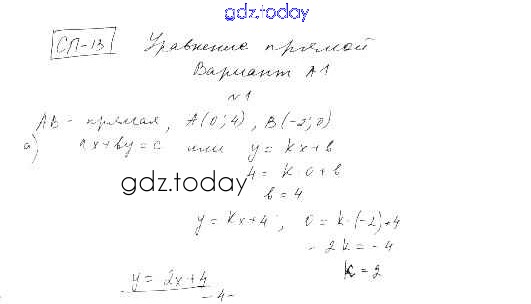 gdz.today
СП-13 Уравнение прямой
Вариант А1
№1
AB - прямая, A(0; 4), B(-2; 0)
а) ax+by=c или y = kx+b
4 = k·0+b
gdz.today
b = 4
y = kx+4; 0 = k·(-2)+4
-2k = -4
k = 2
y = 2x+4
-4-